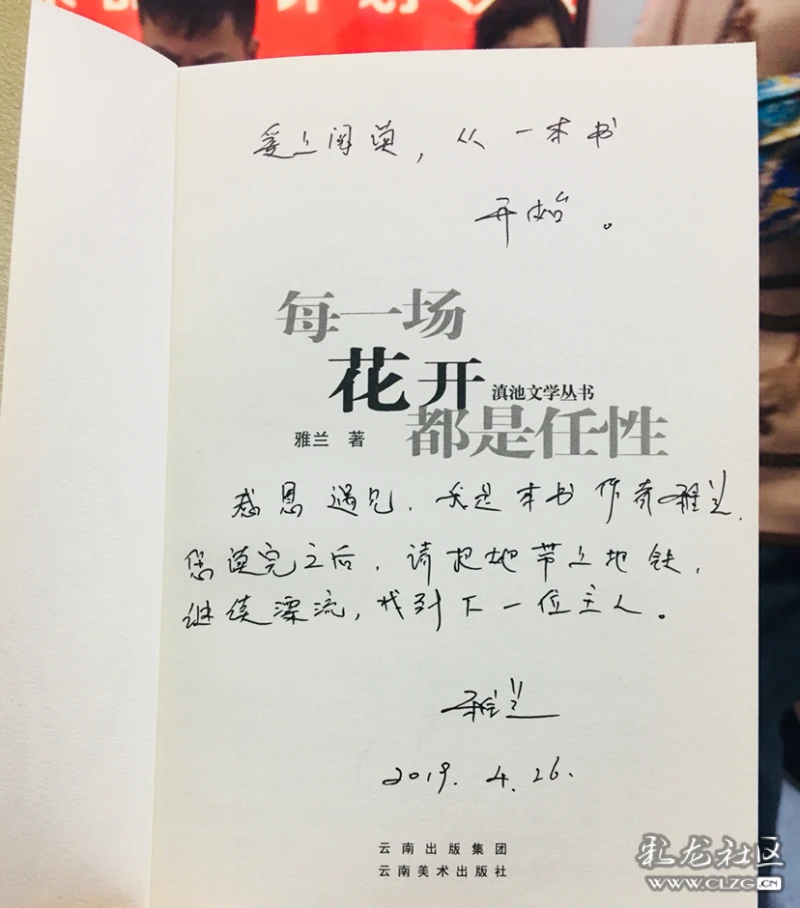 爱上阅读，从一本书
开始。
每一场
花开
滇池文学丛书
都是任性
雅兰 著
感恩遇见，我是本书作者雅兰，
您读完之后，请把她带上地铁，
继续漂流，找到下一位主人。
雅兰
2019.4.26.
云南出版集团
云南美术出版社
彩龙社区
WWW.CLZG.CN